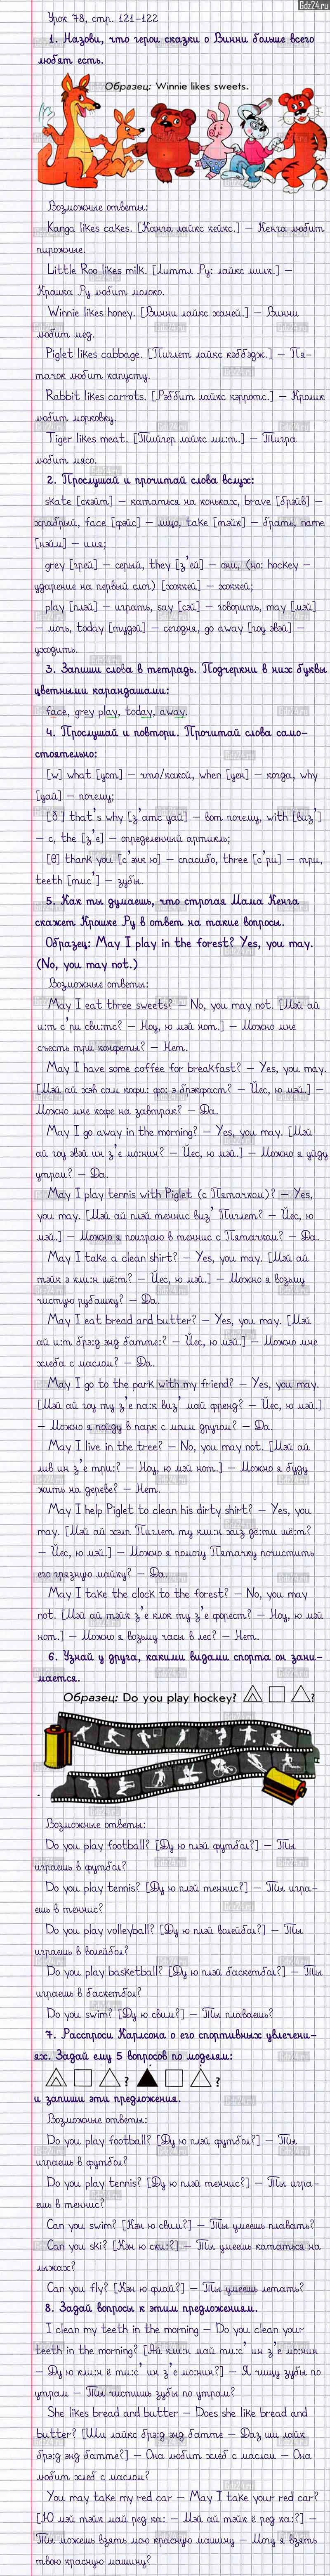 Gdz24.ru
Урок 78, стр. 121-122
1. Назови, что герои сказки о Винни больше всего
любят есть.
Образец: Winnie likes sweets.
Возможные ответы:
Kanga likes cakes. [Канга лайкс кейкс.] – Кенга любит
пирожные.
Little Roo likes milk. [Литтл Ру: лайкс милк.] –
Крошка Ру любит молоко.
Winnie likes honey. [Винни лайкс ханей.] – Винни
любит мед.
Piglet likes cabbage. [Пиглет лайкс кэббэдж.] – Пя-
тачок любит капусту.
Rabbit likes carrots. [Рэббит лайкс кэрротс.] – Кролик
любит морковку.
Tiger likes meat. [Тайгер лайкс ми:т.] – Тигра
любит мясо.
2. Прослушай и прочитай слова вслух:
skate [скэйт] – кататься на коньках, brave [брэйв] –
храбрый, face [фэйс] – лицо, take [тэйк] – брать, name
[нэйм] – имя;
grey [грей] – серый, they [з'ей] – они, (но: hockey –
ударение на первый слог) [хоккей] – хоккей;
play [плэй] – играть, say [сэй] – говорить, may [мэй]
– мочь, today [тудэй] – сегодня, go away [гоу эвэй] –
уходить.
3. Запиши слова в тетрадь. Подчеркни в них буквы
цветными карандашами:
face, grey play, today, away.
4. Прослушай и повтори. Прочитай слова само-
стоятельно:
[w] what [уот] – что/какой, when [уен] – когда, why
[уай] – почему;
[ð] that's why [з'атс уай] – вот почему, with [виз']
– с, the [з'е] – определенный артикль;
[θ] thank you [с'энк ю] – спасибо, three [с'ри] – три,
teeth [тис'] – зубы.
5. Как ты думаешь, что строгая Мама Кенга
скажет Крошке Ру в ответ на такие вопросы.
Образец: May I play in the forest? Yes, you may.
(No, you may not.)
Возможные ответы:
May I eat three sweets? – No, you may not. [Мэй ай
и:т с'ри сви:тс? – Ноу, ю мэй нот.] – Можно мне
съесть три конфеты? – Нет.
May I have some coffee for breakfast? – Yes, you may.
[Мэй ай хэв сам кофи: фо: э брэкфаст? – Йес, ю мэй.] –
Можно мне кофе на завтрак? – Да.
May I go away in the morning? – Yes, you may. [Мэй
ай гоу эвэй ин з'е мо:нин? – Йес, ю мэй.] – Можно я уйду
утром? – Да.
May I play tennis with Piglet (с Пятачком)? – Yes,
you may. [Мэй ай плэй теннис виз' Пиглет? – Йес, ю
мэй.] – Можно я поиграю в теннис с Пятачком? – Да.
May I take a clean shirt? – Yes, you may. [Мэй ай
тэйк э кли:н шё:т? – Йес, ю мэй.] – Можно я возьму
чистую рубашку? – Да.
May I eat bread and butter? – Yes, you may. [Мэй
ай и:т брэ:д энд батте:? – Йес, ю мэй.] – Можно мне
хлеба с маслом? – Да.
May I go to the park with my friend? – Yes, you may.
[Мэй ай гоу ту з'е па:к виз' май френд? – Йес, ю мэй.]
– Можно я пойду в парк с моим другом? – Да.
May I live in the tree? – No, you may not. [Мэй ай
лив ин з'е три:? – Ноу, ю мэй нот.] – Можно я буду
жить на дереве? – Нет.
May I help Piglet to clean his dirty shirt? – Yes, you
may. [Мэй ай хэлп Пиглет ту кли:н хиз дё:ти шё:т?
– Йес, ю мэй.] – Можно я помогу Пятачку почистить
его грязную майку? – Да.
May I take the clock to the forest? – No, you may
not. [Мэй ай тэйк з'е клок ту з'е форест? – Ноу, ю мэй
нот.] – Можно я возьму часы в лес? – Нет.
6. Узнай у друга, какими видами спорта он зани-
мается.
Образец: Do you play hockey?
?
Возможные ответы:
Do you play football? [Ду ю плэй футбол?] – Ты
играешь в футбол?
Do you play tennis? [Ду ю плэй теннис?] – Ты игра-
ешь в теннис?
Do you play volleyball? [Ду ю плэй волейбол?] – Ты
играешь в волейбол?
Do you play basketball? [Ду ю плэй баскетбол?] – Ты
играешь в баскетбол?
Do you swim? [Ду ю свим?] – Ты плаваешь?
7. Расспроси Карлсона о его спортивных увлечени-
ях. Задай ему 5 вопросов по моделям:
? ?
и запиши эти предложения.
Возможные ответы:
Do you play football? [Ду ю плэй футбол?] – Ты
играешь в футбол?
Do you play tennis? [Ду ю плэй теннис?] – Ты игра-
ешь в теннис?
Can you swim? [Кэн ю свим?] – Ты умеешь плавать?
Can you ski? [Кэн ю ски:?] – Ты умеешь кататься на
лыжах?
Can you fly? [Кэн ю флай?] – Ты умеешь летать?
8. Задай вопросы к этим предложениям.
I clean my teeth in the morning – Do you clean your
teeth in the morning? [Ай кли:н май ти:с' ин з'е мо:нин
– Ду ю кли:н ё ти:с' ин з'е мо:нин?] – Я чищу зубы по
утрам – Ты чистишь зубы по утрам?
She likes bread and butter – Does she like bread and
butter? [Ши лайкс брэ:д энд батте – Даз ши лайк
брэ:д энд батте?] – Она любит хлеб с маслом – Она
любит хлеб с маслом?
You may take my red car – May I take your red car?
[Ю мэй тэйк май ред ка: – Мэй ай тэйк ё ред ка:?] –
Ты можешь взять мою красную машину – Могу я взять
твою красную машину?